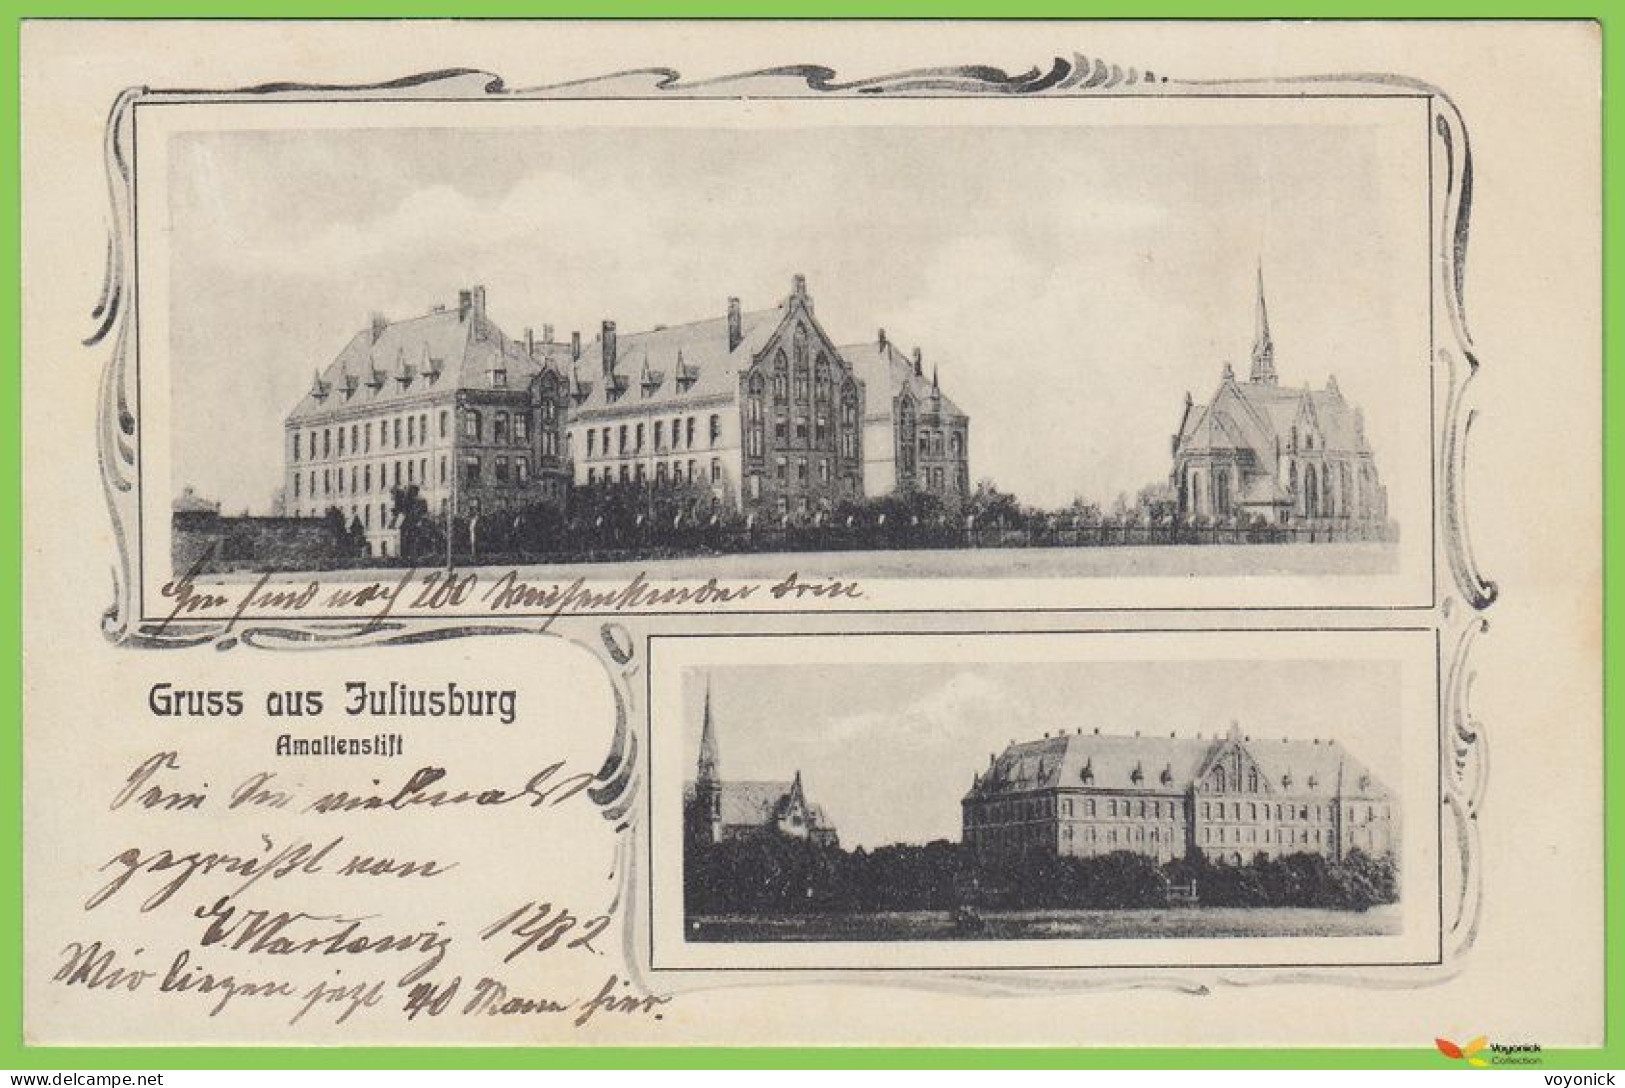 Hier sind noch 200 Waisenkinder drin.
Gruss aus Juliusburg
Amalienstift
Sein Sie vielmals
gegrüßt von
Wartowig 12/82.
Wir liegen jetzt 40 Mann hier.
Voyonick
Collection
delcampe.net
voyonick